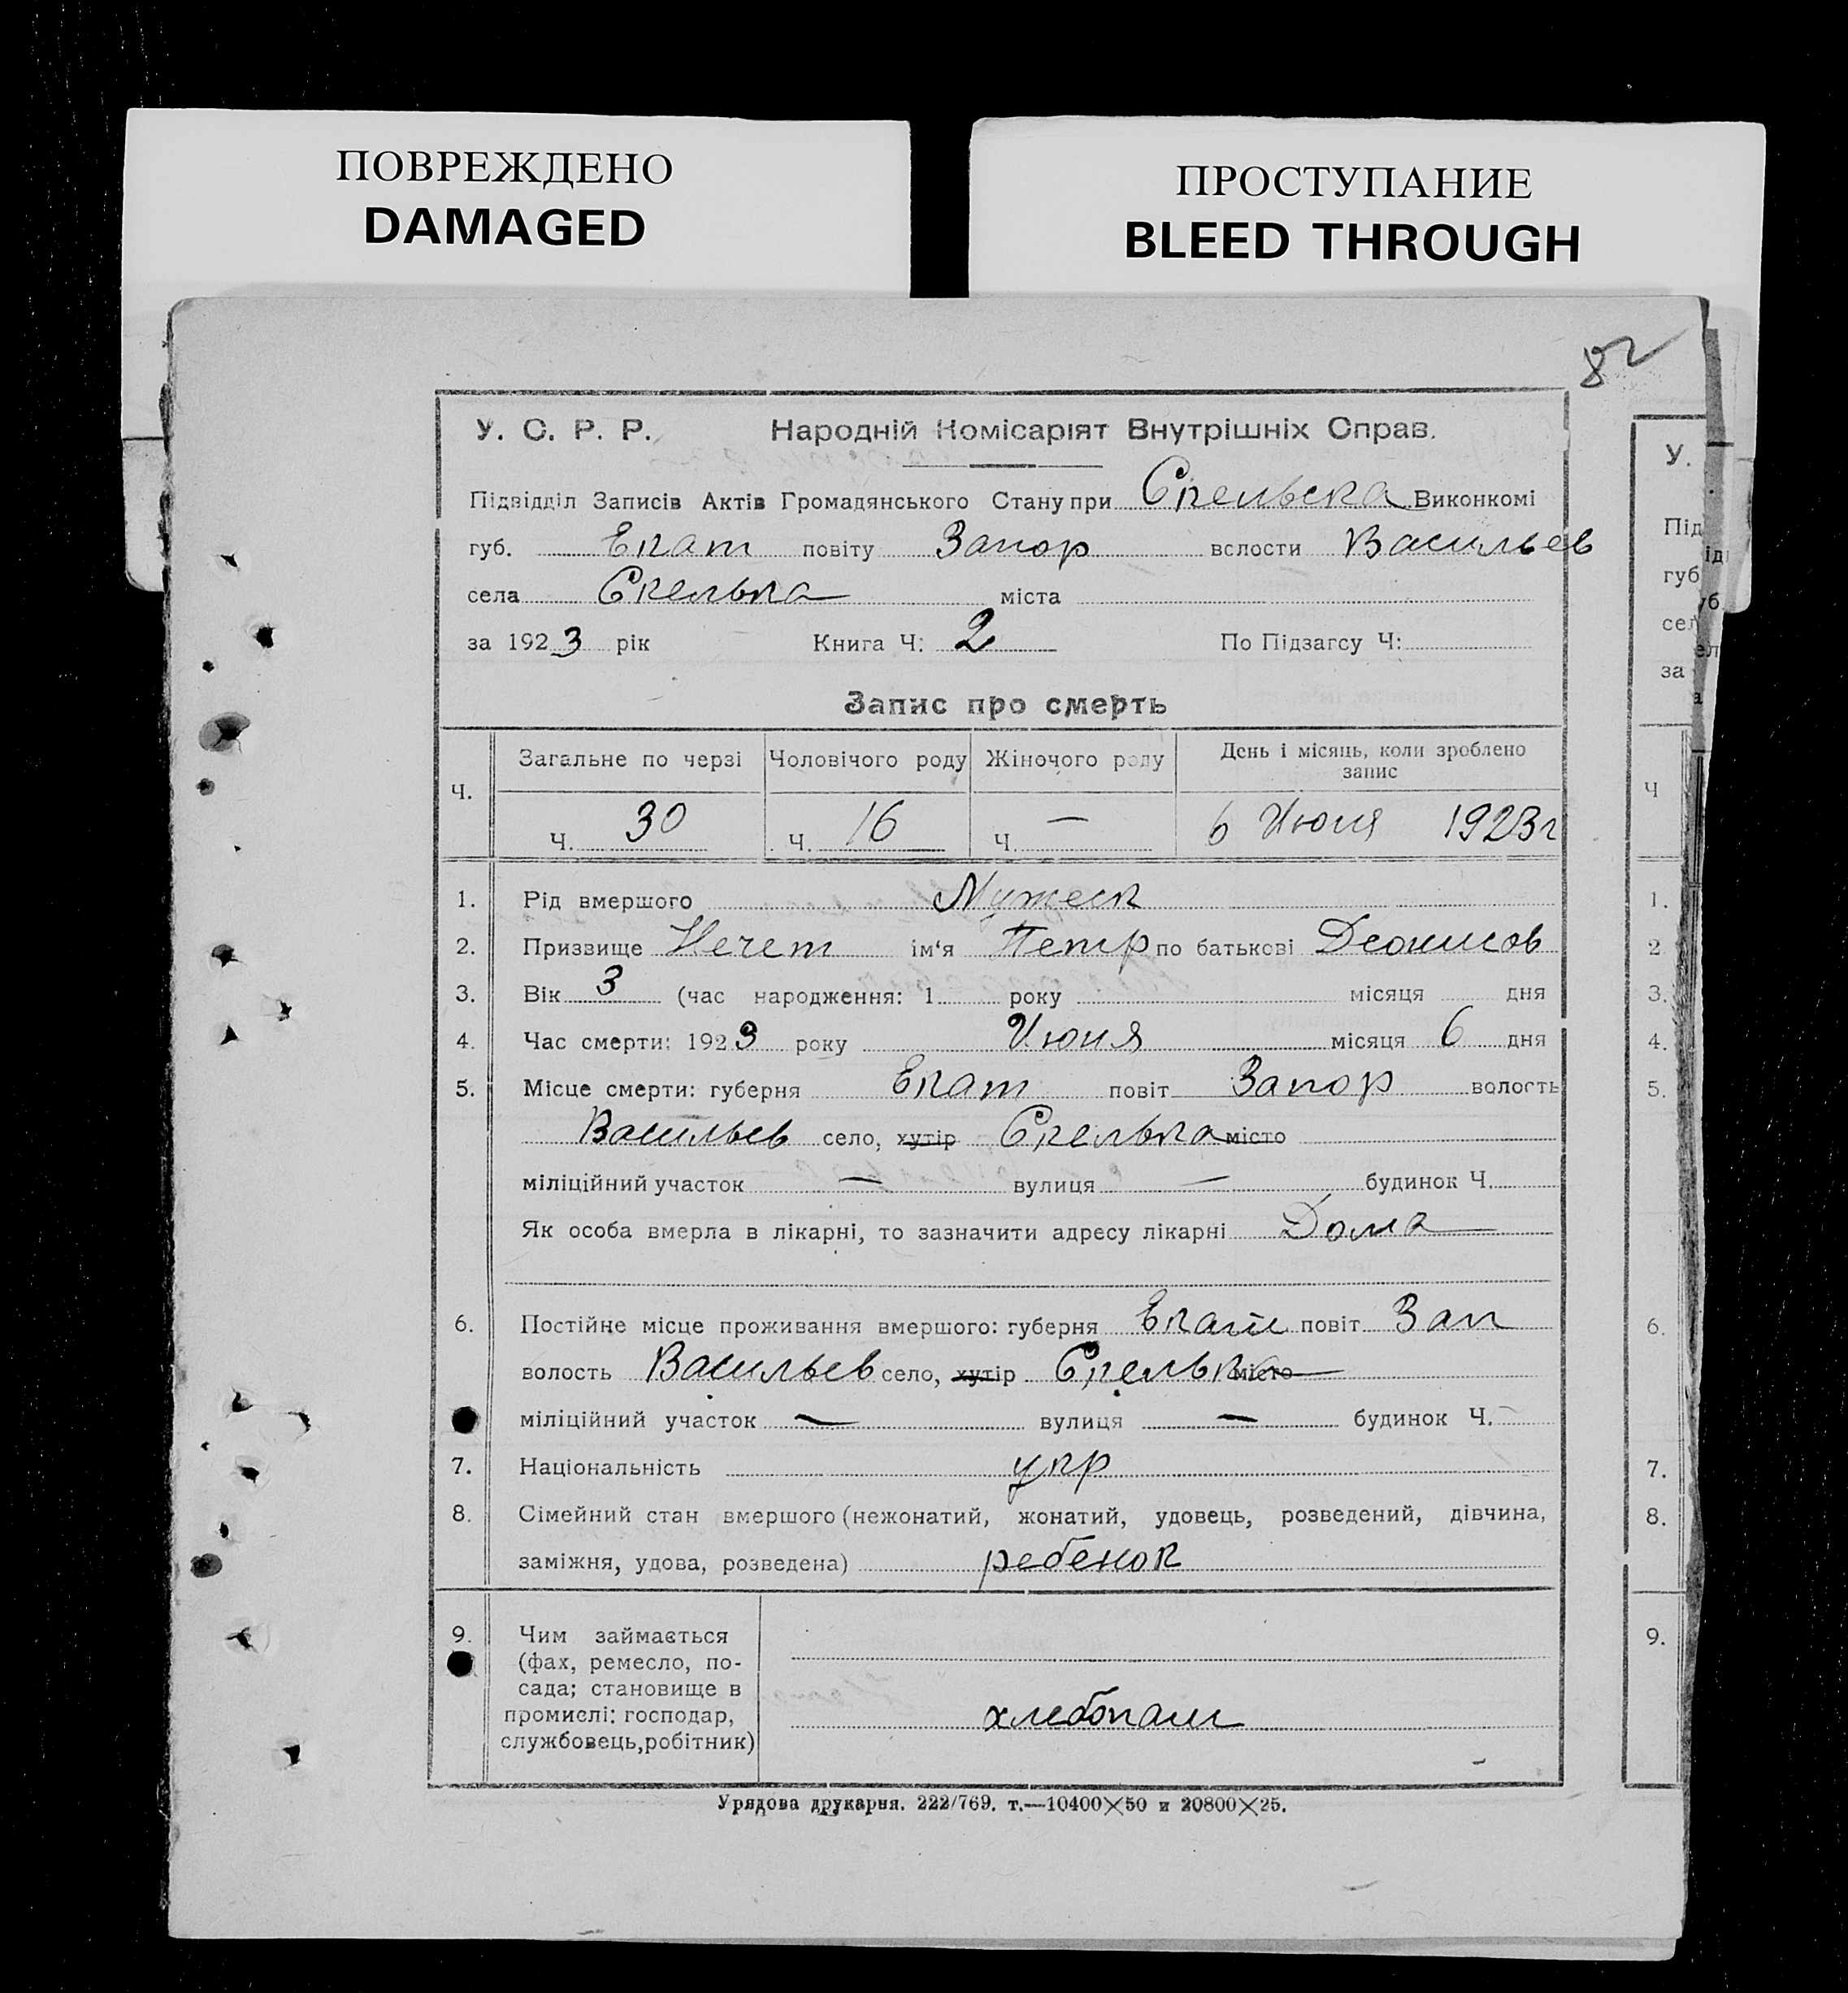 ПОВРЕЖДЕНО
DAMAGED
ПРОСТУПАНИЕ
BLEED THROUGH
82
У. С. Р. Р. Народній Комісаріят Внутрішніх Справ.
Підвідділ Записів Актів Громадянського Стану при Скельска Виконкомі
губ. Екат повіту Запор волости Васильев
села Скелька міста
за 1923 рік Книга Ч: 2 По Підзагсу Ч:
Запис про смерть
Ч. Загальне по черзі Чоловічого роду Жіночого роду День і місяць, коли зроблено запис
Ч. 30 Ч. 16 Ч. — 6 Июня 1923г
1. Рід вмершого Мужеск
2. Призвище Нечет ім'я Петр по батькові Деонисов
3. Вік 3 (час народження: 1 року місяця дня
4. Час смерти: 1923 року Июня місяця 6 дня
5. Місце смерти: губерня Екат повіт Запор волость
Васильев село, хутір Скелька місто
міліційний участок — вулиця — будинок Ч.
Як особа вмерла в лікарні, то зазначити адресу лікарні Дома
6. Постійне місце проживання вмершого: губерня Екат повіт Зап
волость Васильев село, хутір Скелька місто
міліційний участок — вулиця — будинок Ч. —
7. Національність укр
8. Сімейний стан вмершого (нежонатий, жонатий, удовець, розведений, дівчина,
заміжня, удова, розведена) ребенок
9. Чим займається
(фах, ремесло, по-
сада; становище в
промислі: господар,
службовець, робітник)
хлебопаш
Урядова друкарня. 222/769. т.—10400×50 и 20800×25.
У.
Під
губ
сел
за
Ч
1.
2
3.
4.
5.
6.
7.
8.
9.